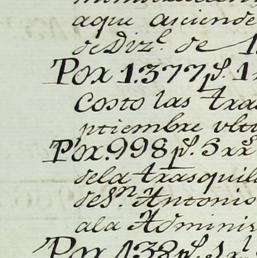 aque asciende
de Dizᵉ. de 1
Por 1.377 pˢ. 1
Costo las tras
ptiembre vlt
Por. 998 pˢ. 3 rrˢ
dela trasquil
de Sⁿ. Antonio
ala Adminis
Por 138 pˢ. 1 rˡ